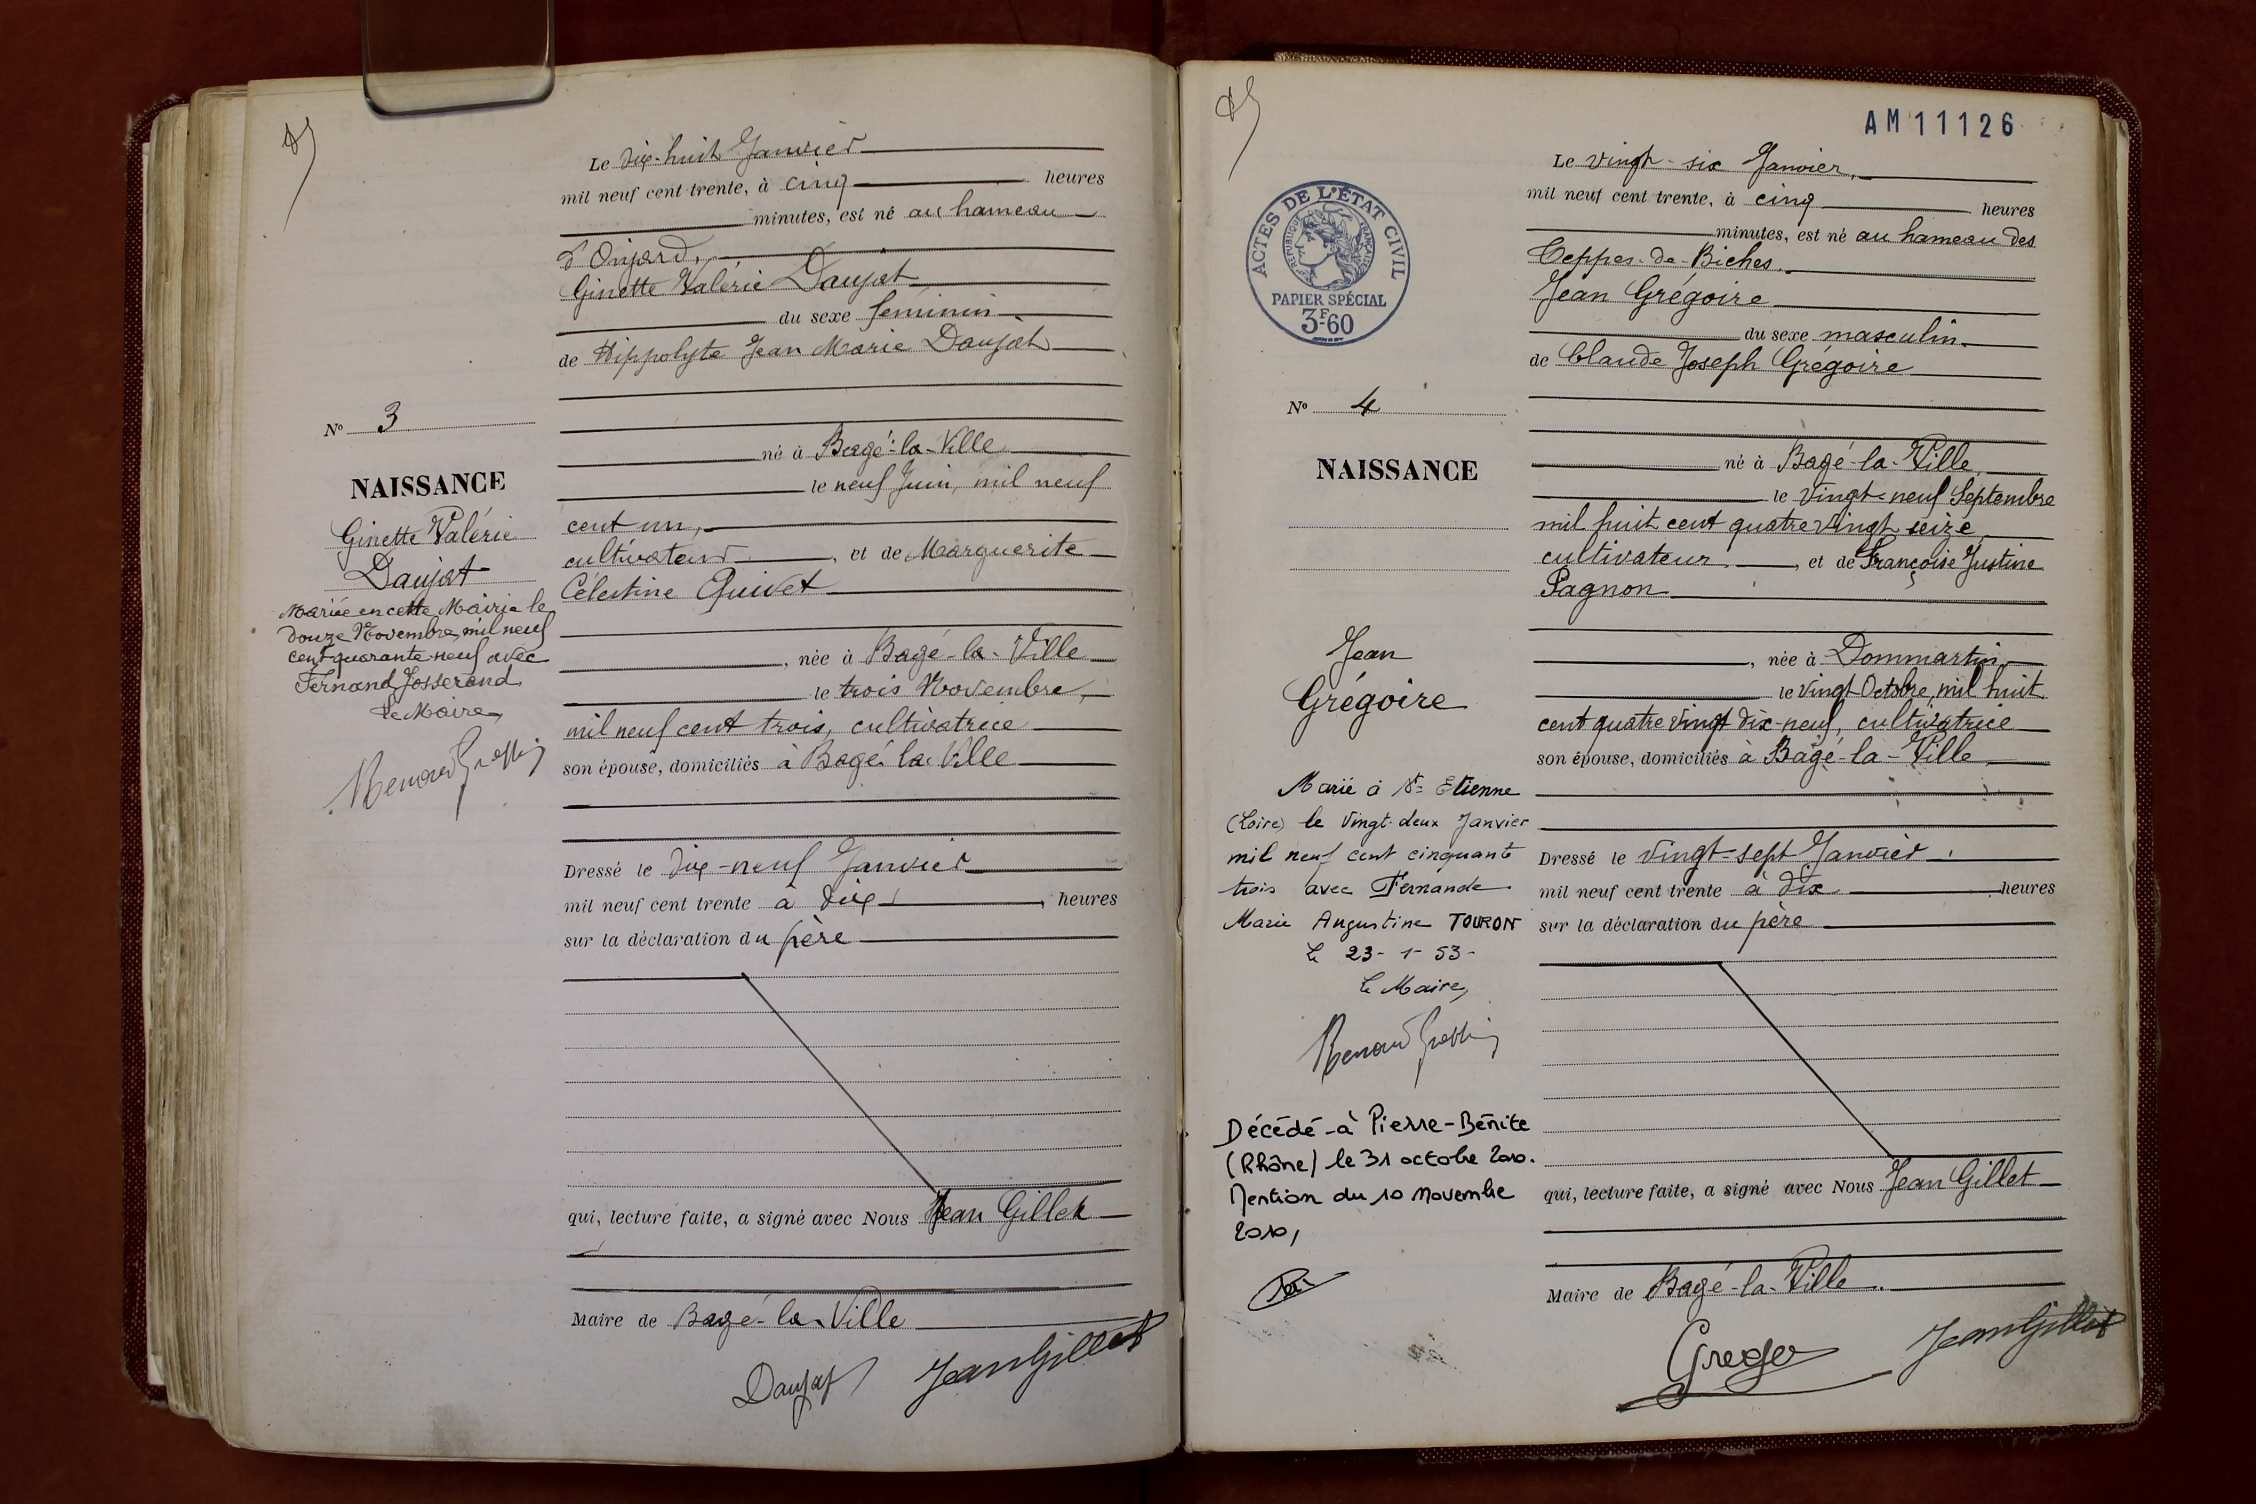 Le dix-huit Janvier
mil neuf cent trente, à cinq heures
minutes, est né au hameau
d'Onjard,
Ginette Valérie Daujat
du sexe féminin
de Hippolyte Jean Marie Daujat
né à Bagé-la-Ville
le neuf Juin, mil neuf
cent un,
cultivateur, et de Marguerite
Célestine Quivet
, née à Bagé-la-Ville
le trois Novembre,
mil neuf cent trois, cultivatrice
son épouse, domiciliés à Bagé-la-Ville
Dressé le dix-neuf Janvier
mil neuf cent trente à dix, heures
sur la déclaration du père
qui, lecture faite, a signé avec Nous Jean Gillet
Maire de Bagé-la-Ville
Daujat Jean Gillet
No 3
NAISSANCE
Ginette Valérie
Daujat
Mariée en cette Mairie le
douze Novembre mil neuf
cent quarante-neuf avec
Fernand Josserand
Le Maire,
AM11126
ACTES DE L'ÉTAT CIVIL
RÉPUBLIQUE FRANÇAISE
PAPIER SPÉCIAL
3F-60
No 4
NAISSANCE
Jean
Grégoire
Marié à St Etienne
(Loire) le vingt-deux Janvier
mil neuf cent cinquante
trois avec Fernande
Marie Augustine TOURON
Le 23-1-53-
Le Maire,
Décédé à Pierre-Bénite
(Rhône) le 31 octobre 2010.
Mention du 10 Novembre
2010,
Le vingt-six Janvier,
mil neuf cent trente, à cinq heures
minutes, est né au hameau des
Teppes-de-Biches,
Jean Grégoire
du sexe masculin
de Claude Joseph Grégoire
né à Bagé-la-Ville,
le vingt-neuf Septembre
mil huit cent quatre vingt seize
cultivateur, et de Françoise Justine
Pagnon
, née à Dommartin,
le vingt Octobre, mil huit
cent quatre vingt dix-neuf, cultivatrice
son épouse, domiciliés à Bagé-la-Ville
Dressé le vingt-sept Janvier,
mil neuf cent trente à dix heures
sur la déclaration du père
qui, lecture faite, a signé avec Nous Jean Gillet
Maire de Bagé-la-Ville.
Jean Gillet